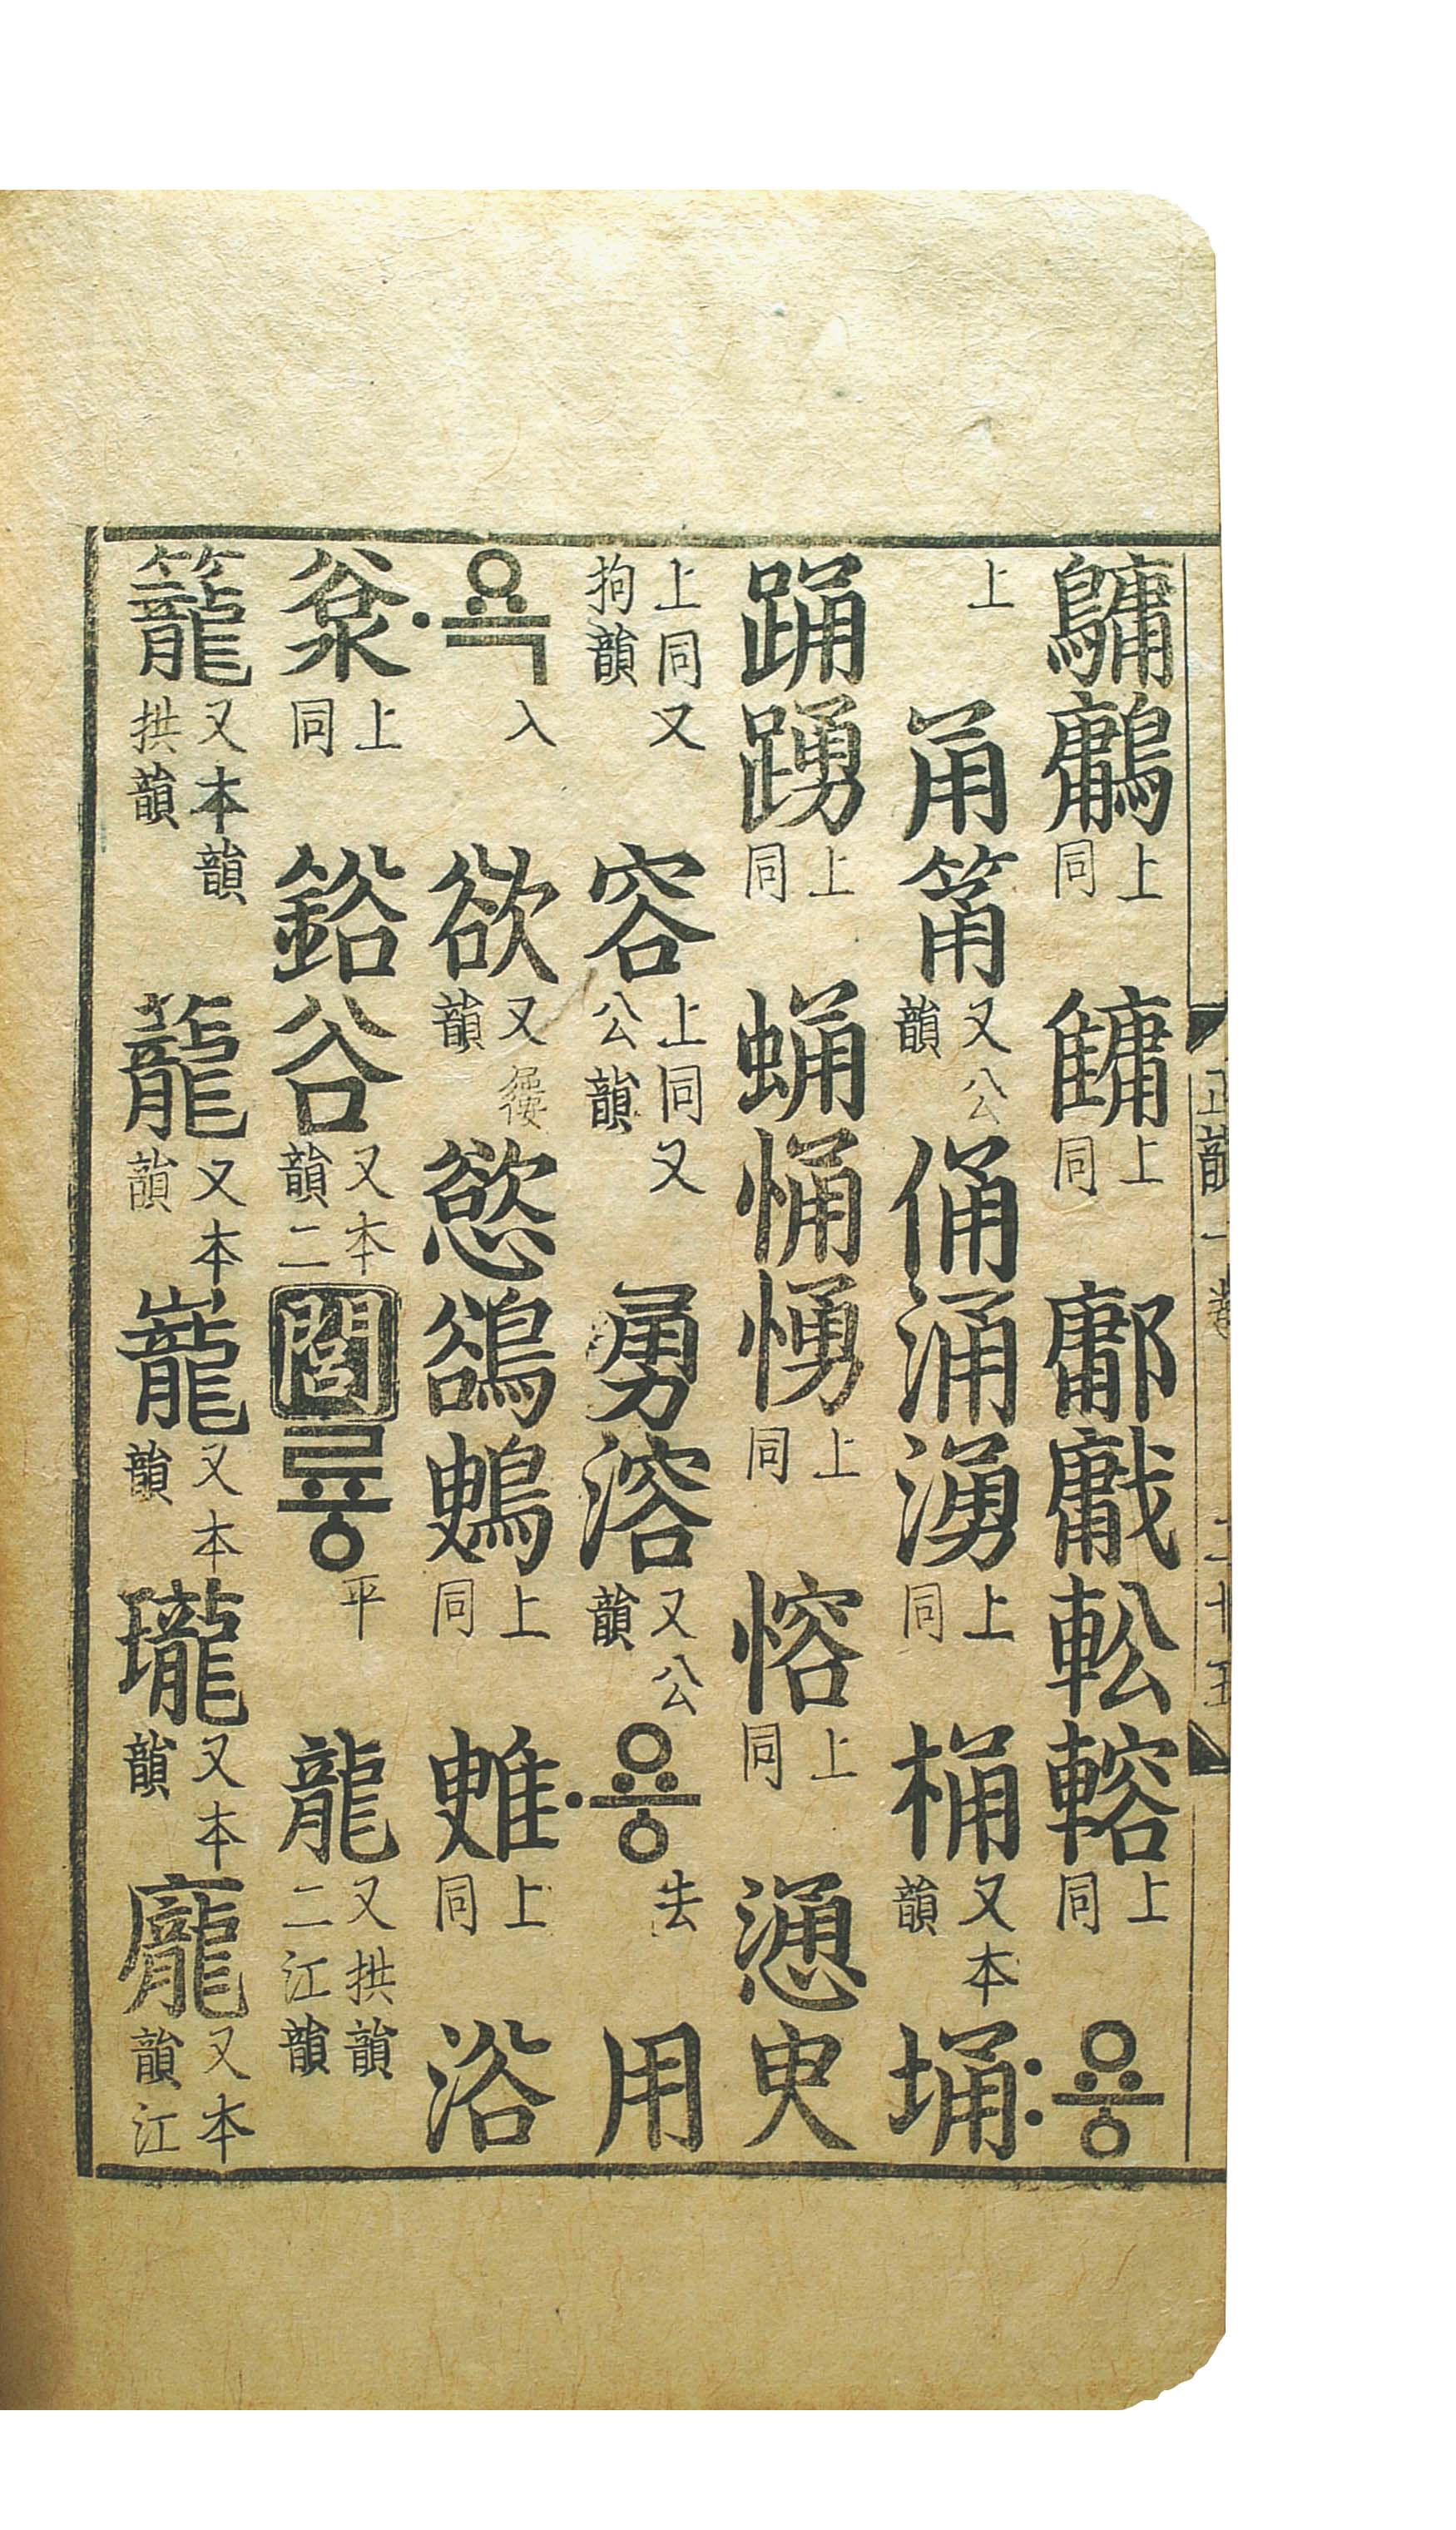 鷛 上同 上同 鄘 輍 上同 :용
上 甬 筩 又公韻 俑 涌 湧 上同 桶 又本韻 埇
踊 踴 上同 蛹 悀 愑 上同 愹 上同 慂 臾
上同又拘韻 容 上同又公韻 勇 溶 又公韻 ·용 去 用
·욕 入 欲 又韻 慾 鵒 上同 上同 浴
上同 鋊 谷 又本韻二 閭 룡 平 龍 又拱韻二江韻
籠 又本韻拱韻 蘢 又本韻 巃 又本韻 瓏 又本韻 龐 又本韻江